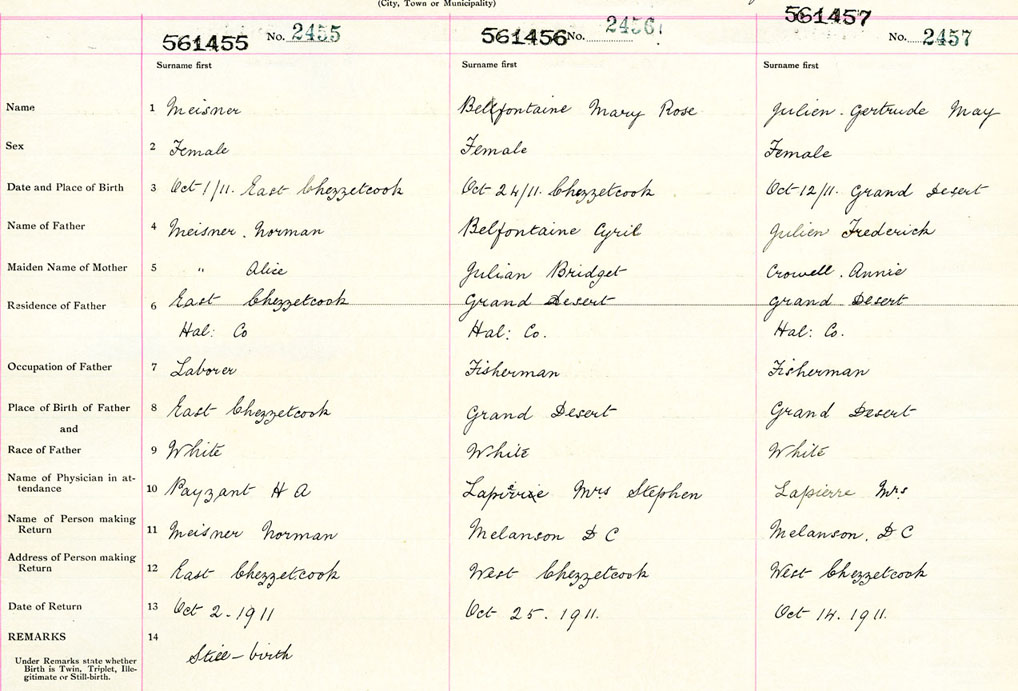 (City, Town or Municipality)
561455 No. 2455 561456 No. 2456 561457 No. 2457
Surname first Surname first Surname first
Name 1 Meisner Belfontaine Mary Rose Julien. Gertrude May
Sex 2 Female Female Female
Date and Place of Birth 3 Oct 1/11. East Chezzetcook Oct 24/11. Chezzetcook Oct 12/11. Grand Desert
Name of Father 4 Meisner. Norman Belfontaine Cyril Julien Frederick
Maiden Name of Mother 5 " Alice Julian Bridget Crowell. Annie
Residence of Father 6 East Chezzetcook Grand Desert Grand Desert
Hal: Co Hal: Co. Hal: Co.
Occupation of Father 7 Laborer Fisherman Fisherman
Place of Birth of Father 8 East Chezzetcook Grand Desert Grand Desert
and
Race of Father 9 White White White
Name of Physician in at-
tendance 10 Payzant H A Lapierre Mrs Stephen Lapierre Mrs
Name of Person making
Return 11 Meisner Norman Melanson D C Melanson. D C
Address of Person making
Return 12 East Chezzetcook West Chezzetcook West Chezzetcook
Date of Return 13 Oct 2. 1911 Oct 25. 1911. Oct 14. 1911.
REMARKS 14
Still-birth
Under Remarks state whether
Birth is Twin, Triplet, Ille-
gitimate or Still-birth.